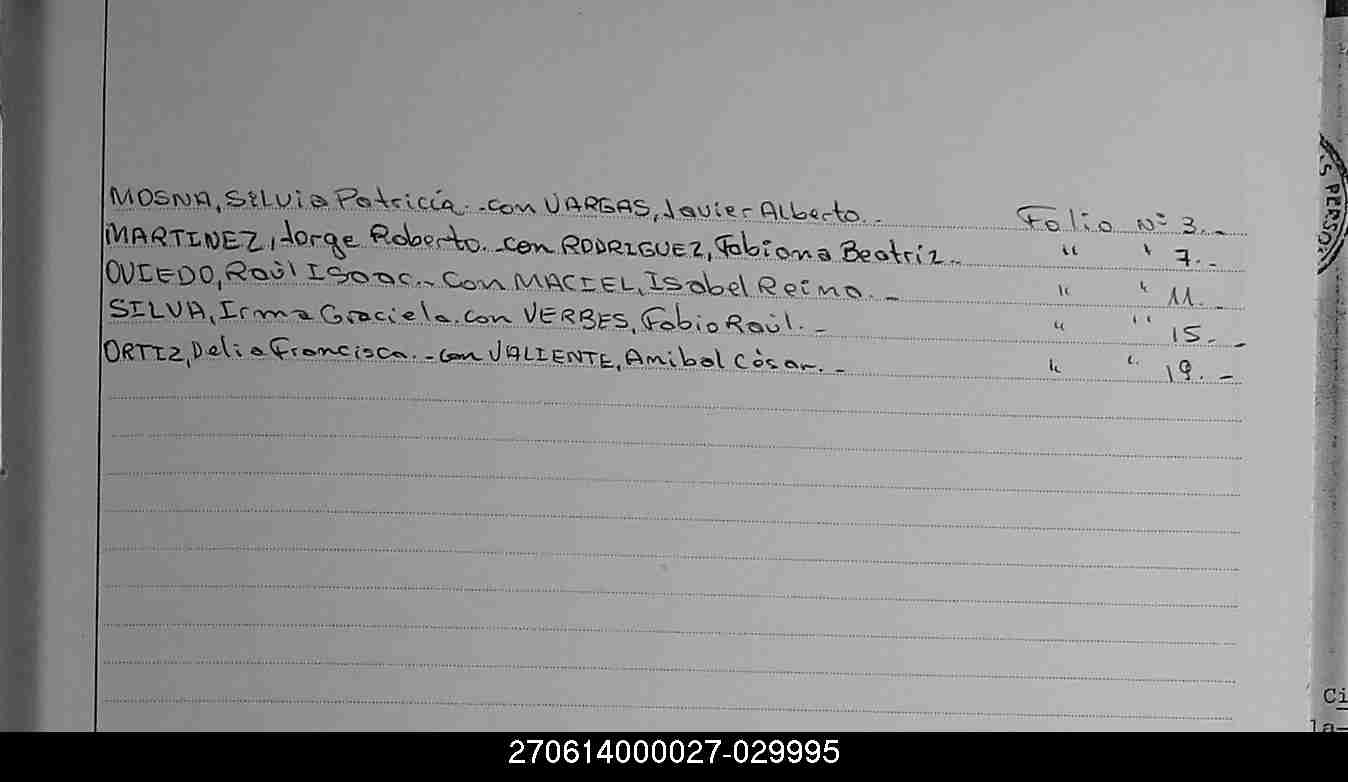 MOSNA, Silvia Patricia.-con VARGAS, Javier Alberto.- Folio Nº 3.-
MARTINEZ, Jorge Roberto.-con RODRIGUEZ, Fabiana Beatriz.- " " 7.-
OVIEDO, Raúl Isaac.-con MACIEL, Isabel Reina.- " " 11.-
SILVA, Irma Graciela.con VERBES, Fabio Raúl.- " " 15.-
ORTIZ, Delia Francisca.-con VALIENTE, Anibal César.- " " 19.-
S PERSO
Ci
la-
270614000027-029995